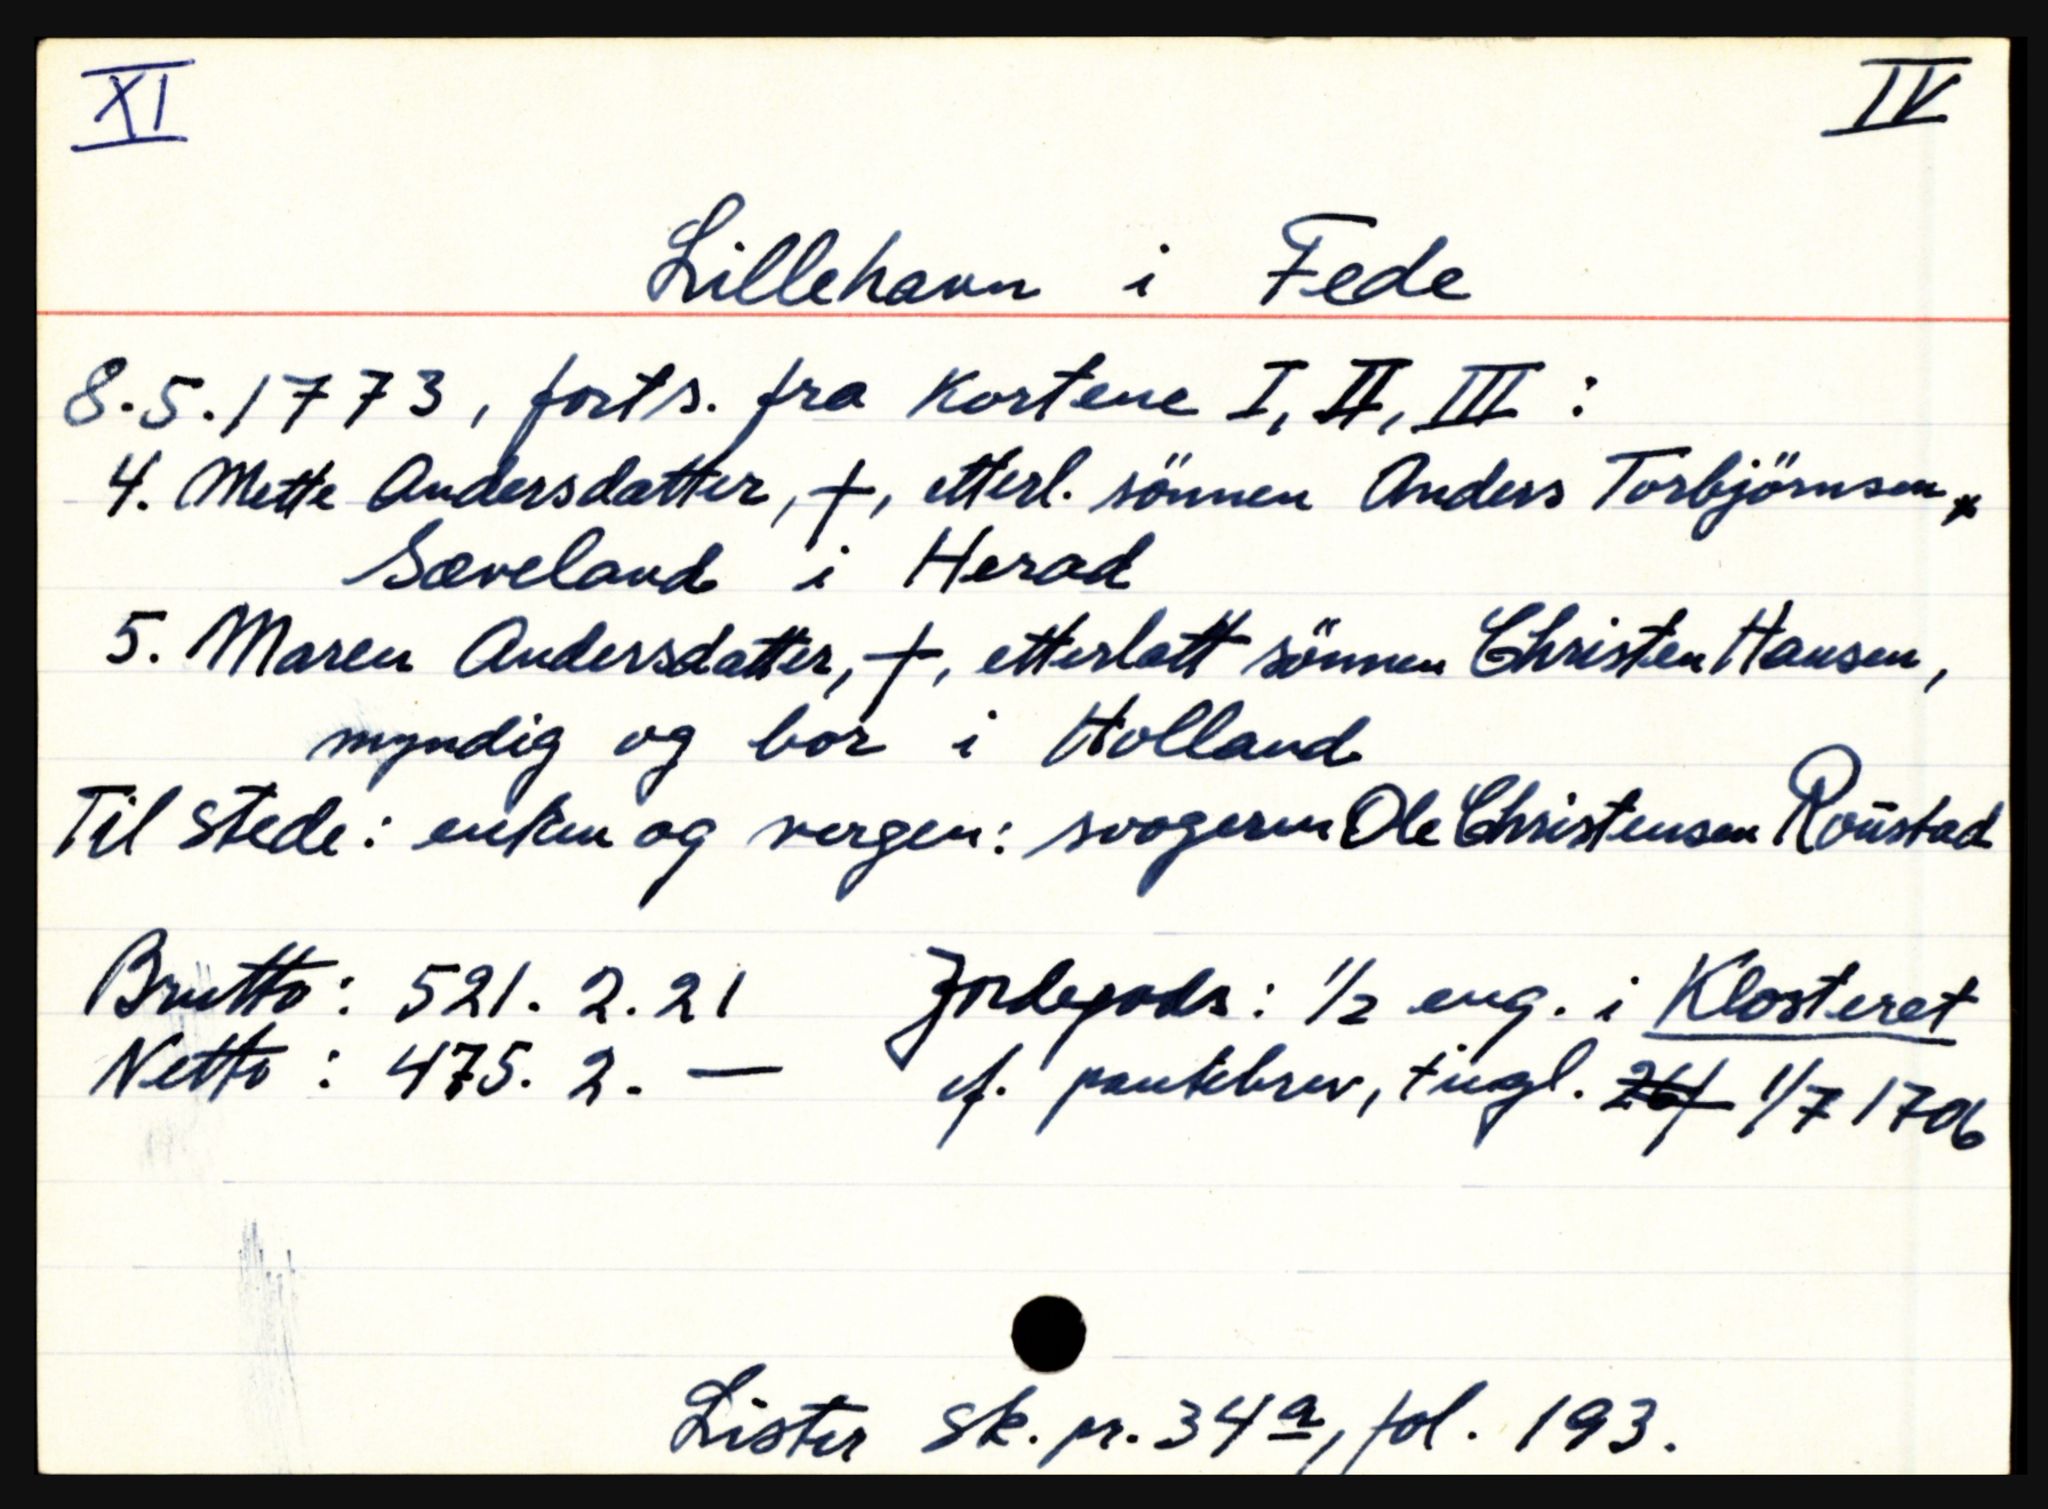 XI
IV
Lillehavn i Fede
8.5.1773, forts. fra kortene I, II, III :
4. Mette Andersdatter, †, etterl. sönnen Anders Torbjörnsen,
Sæveland i Herad
5. Maren Andersdatter, †, etterlatt sönnen Christen Hansen,
myndig og bor i Holland
Til stede: enken og vergen: svogeren Ole Christensen Röustad
Brutto: 521. 2. 21 Jordegods: 1/2 eng. i Klosteret
Netto: 475. 2. — if. pantebrev, tingl. 1/7 1706
Lister sk. pr. 34a, fol. 193.